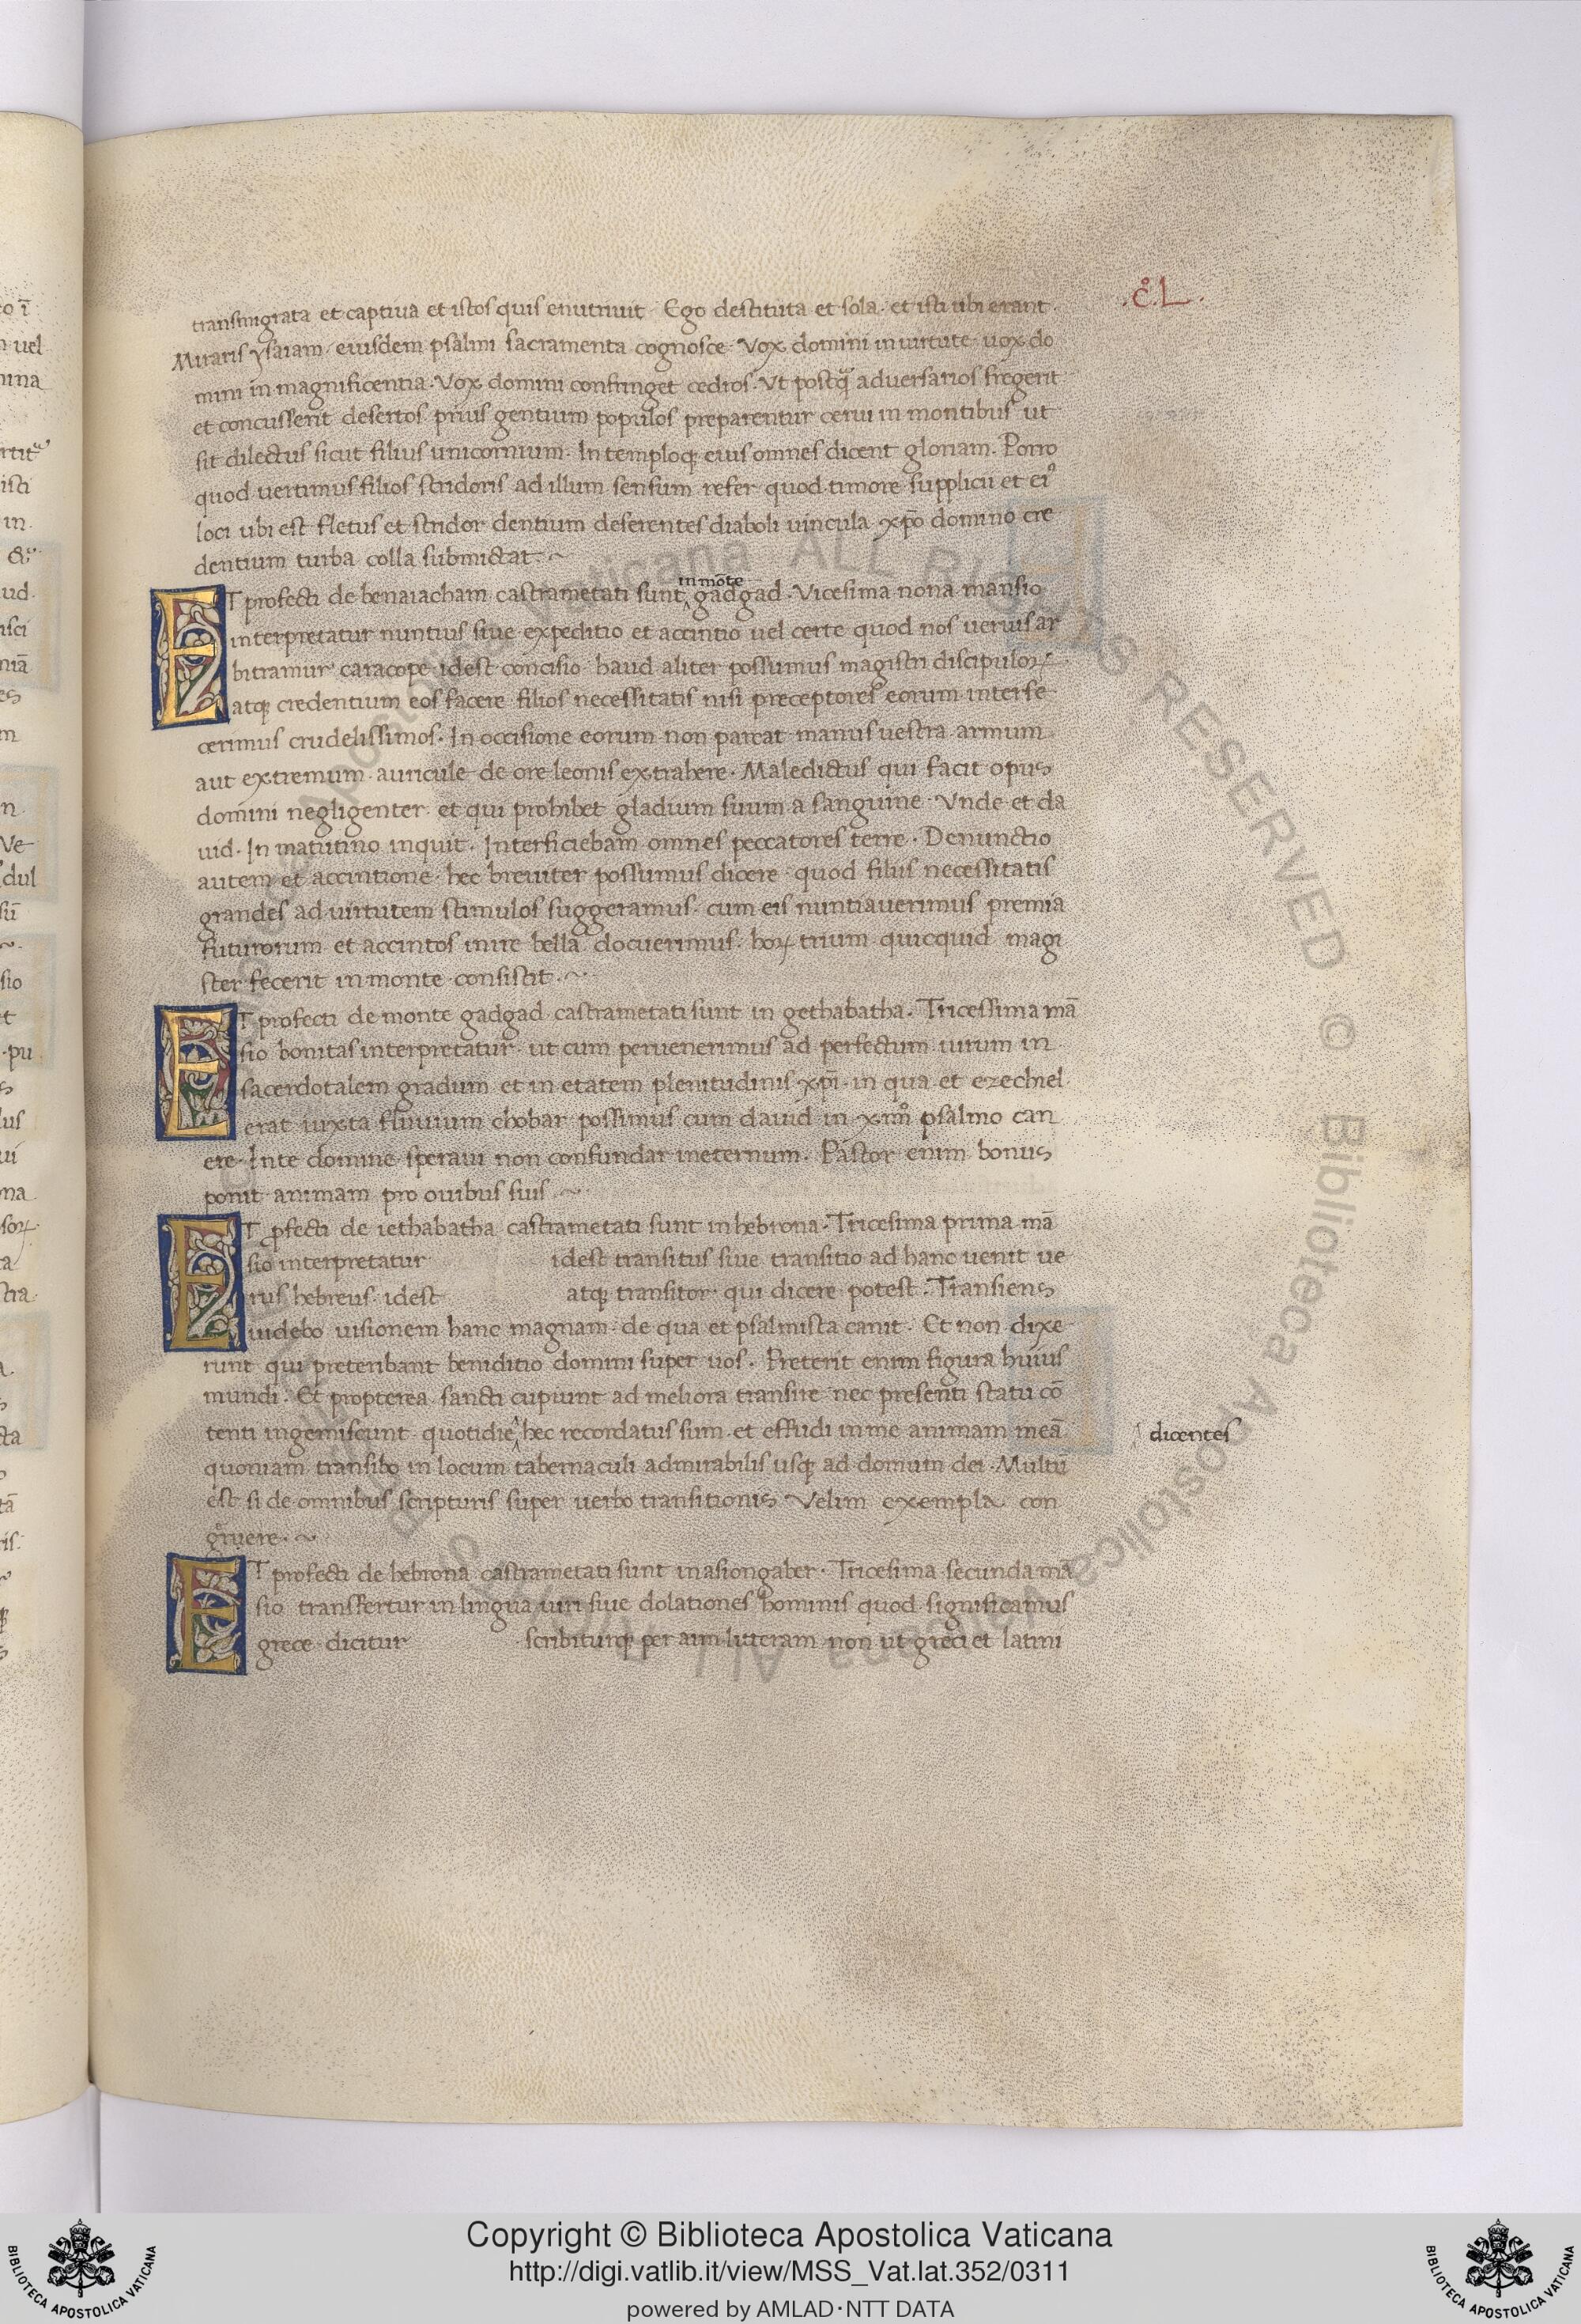 .c͛.L.
transmigrata et captiua et istos quis enutriuit. Ego destituta et sola. et isti ubi erant.
Miraris ysaiam. euisdem psalmi sacramenta cognosce. Vox domini in uirtute. uox do
mini in magnificentia. Vox domini confringet cedros. Vt postq̃ adversarios fregerit
et concusserit desertos prius gentium populos preparentur cerui in montibus ut
sit dilectus sicut filius unicornium. In temploqꝫ eius omnes dicent gloriam. Porro
quod uertimus filios stridoris ad illum sensum refer quod timore supplicii et ei᾽
loci ubi est fletus et stridor dentium deserentes diaboli uincula xp̄o domino cre
dentium turba colla submictat. ~
ET profecti de benaiacham castrametati sunt in mōte gadgad. Vicesima nona mansio
interpretatur nuntius siue expeditio et accintio uel certe quod nos uerius ar
bitramur caracope idest concisio haud aliter possumus magistri discipuloꝝ
atqꝫ credentium eos facere filios necessitatis nisi preceptores eorum interfe
cerimus crudelissimos. In occisione eorum non parcat manus uestra armum
aut extremum auricule de ore leonis extrahere. Maledictus qui facit opus
domini negligenter et qui prohibet gladium suum a sanguine. Vnde et da
uid. In matutino inquit. Interficiebam omnes peccatores terre. Denunctio
autem et accintione hec breuiter possumus dicere quod filiis necessitatis
grandes ad uirtutem stimulos suggeramus. cum eis nuntiauerimus premia
futurorum et accintos inire bella docuerimus. hoꝝ trium quicquid magi
ster fecerit in monte consistit. ~
ET profecti de monte gadgad castrametati sunt in gethabatha. Tricessima mā
sio bonitas interpretatur ut cum peruenerimus ad perfectum uirum in
sacerdotalem gradum et in etatem plenitudinis xp̄i in qua et ezechiel
erat iuxta fluuium chobar possimus cum dauid in psalmo can
ere. Inte domine speraui non confundar ineternum. Pastor enim bonus
ponit animam pro ouibus suis ~
ET ꝓfecti de iethabatha castrametati sunt in hebrona. Tricesima prima mā
sio interpretatur idest transitus siue transitio ad hanc uenit ue
rus hebreus idest atqꝫ transitor qui dicere potest. Transiens
uidebo uisionem hanc magnam de qua et psalmista canit. Et non dixe
runt qui preteribant beniditio domini super uos. Preterit enim figura huius
mundi. Et propterea sancti cupiunt ad meliora transire nec presenti statu cō
tenti ingemiscunt quotidie hec recordatus sum et effudi in me animam meā
dicentes
quoniam transibo in locum tabernaculi admirabilis usqꝫ ad domum dei. Multū
est si de omnibus scripturis super uerbo transitionis Velim exempla con
gruere. ~
ET profecti de hebrona castrametati sunt inasiongaber. Tricesima secunda mā
sio transfertur in lingua uiri siue dolationes hominis quod significamus
grece dicitur scribiturqꝫ per litteram non ut greci et latini
Copyright © Biblioteca Apostolica Vaticana
http://digi.vatlib.it/view/MSS_Vat.lat.352/0311
powered by AMLAD·NTT DATA